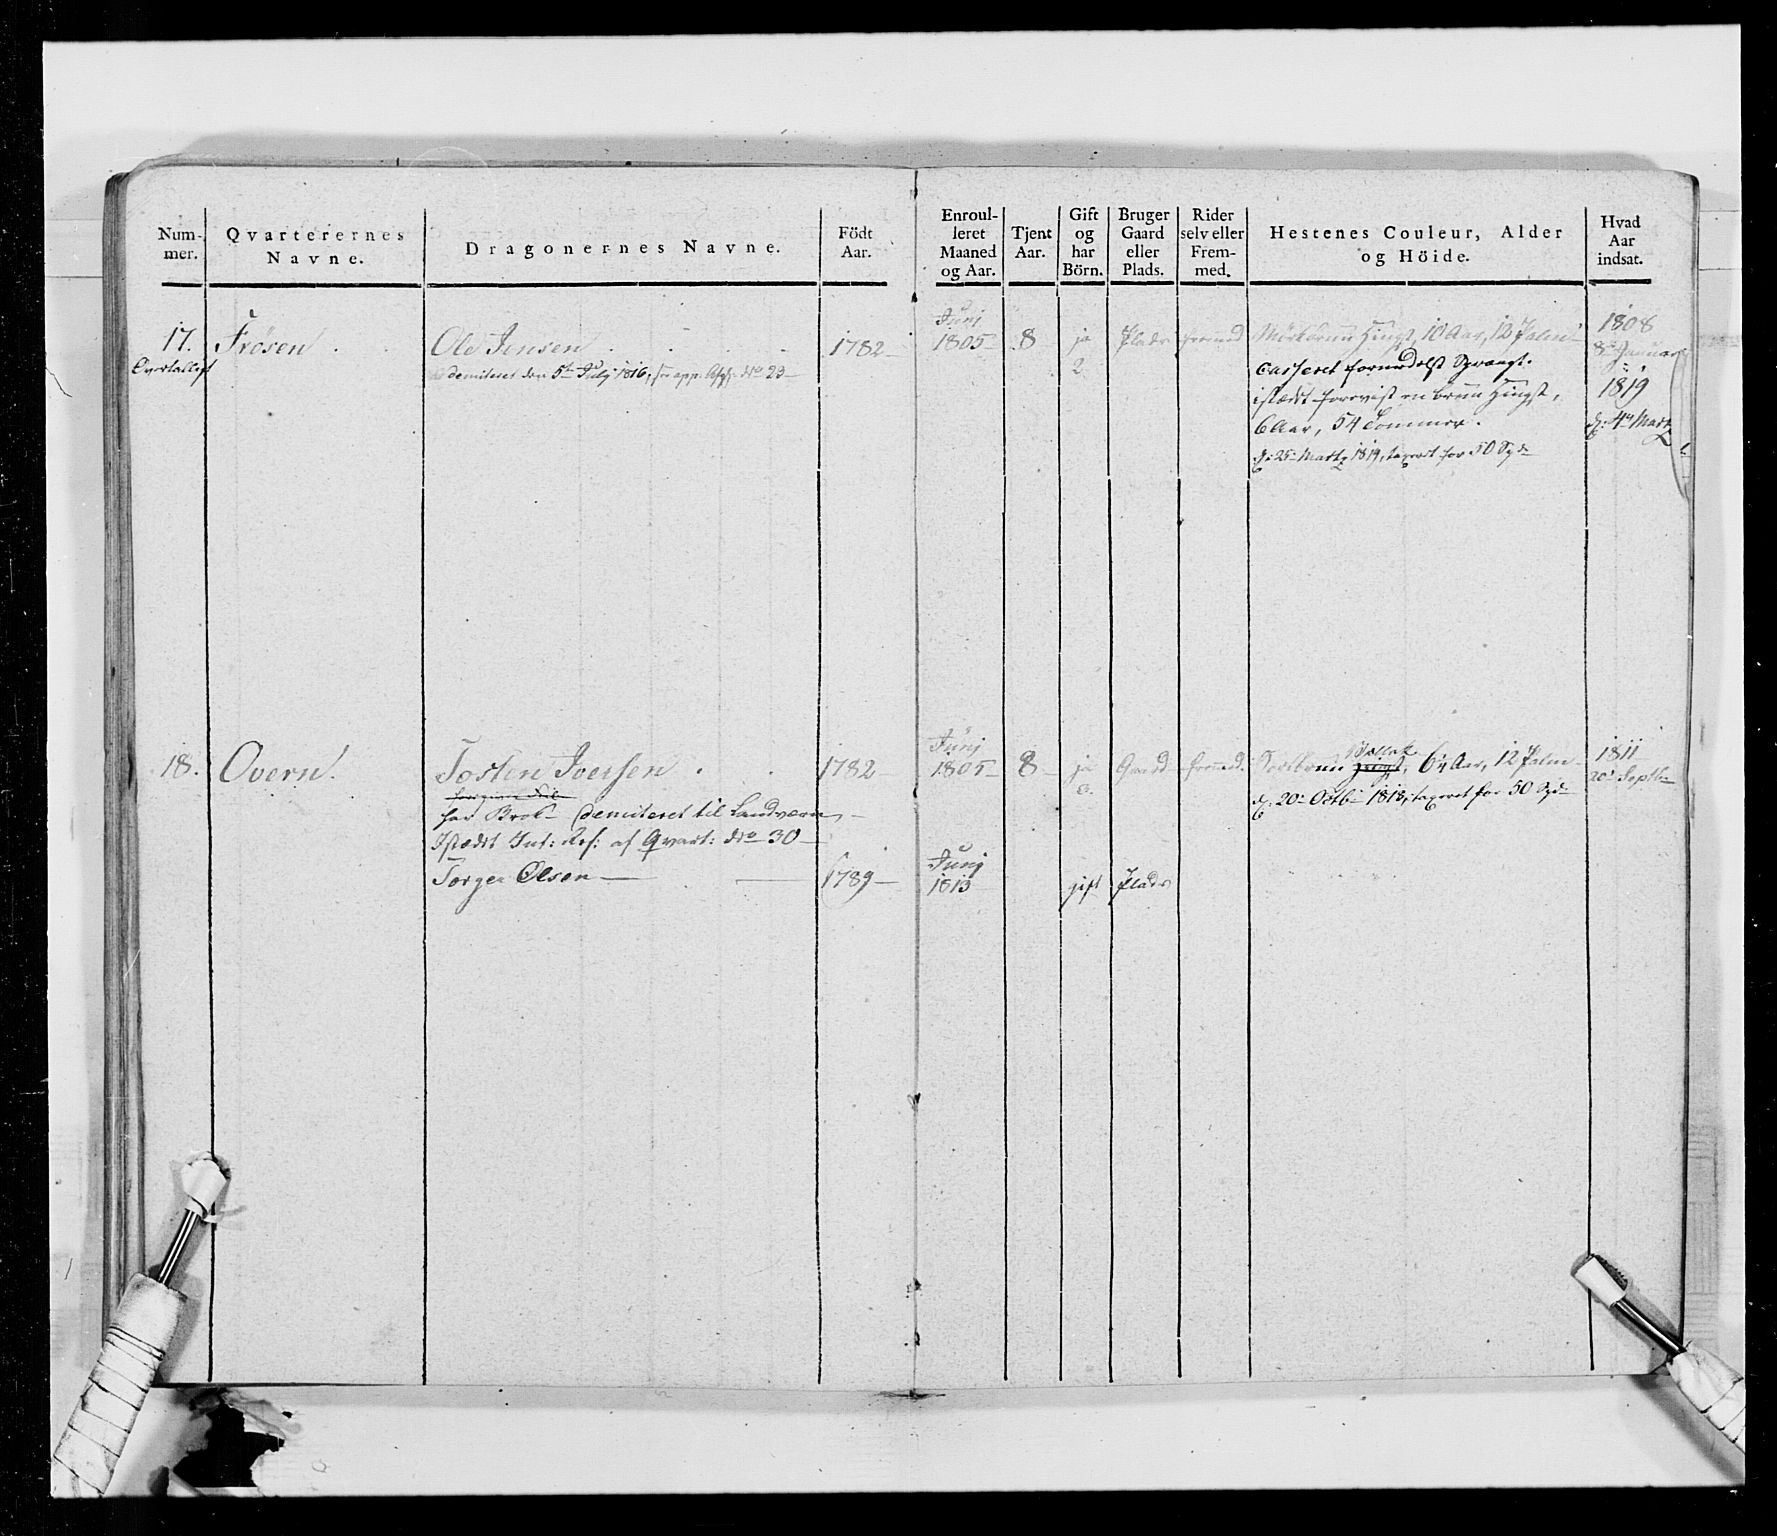 Num-
mer.
Qvarterernes
Navne.
Dragonernes Navne.
Födt
Aar.
Enroul-
leret
Maaned
og Aar.
Tjent
Aar.
Gift
og
har
Börn.
Bruger
Gaard
eller
Plads.
Rider
selv eller
Frem-
med.
Hestenes Couleur, Alder
og Höide.
Hvad
Aar
indsat.
17.
Overtalligt
Frösen
Ole Jensen
demiteret den 5te July 1816,
No 23
1782
Junj
1805
8
ja
2.
Plads
fremed
Mörkbrun Hingst, 10 Aar, 12 Palm
Casseret formedelst Sprengt.
istædt forevist en brun Hingst,
6 Aar, 54 Tommer.
d: 25 Martz 1819, taxeret for 50 Spd
1808
8 Januar
1819
d: 4 Martz
18.
Overn
Torsten Iversen
har demiteret til Landværn
Istædet Int: Res: af Qvart: No 30
Torger Olsen
1782
1789
Junj
1805
8
ja
Gaard
fremed.
Sortbrun Hingst, 6 Aar, 12 Palm
d. 20 Octb 1818, taxeret for 50 Spd
1811
20 Septb
Junj
1813
gift
Plads